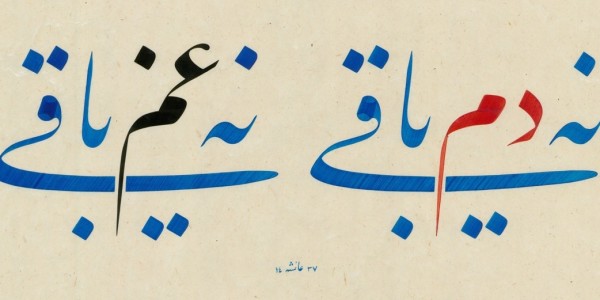 نه دم باقي نه غم باقي
٣٧ عائشه ١٤